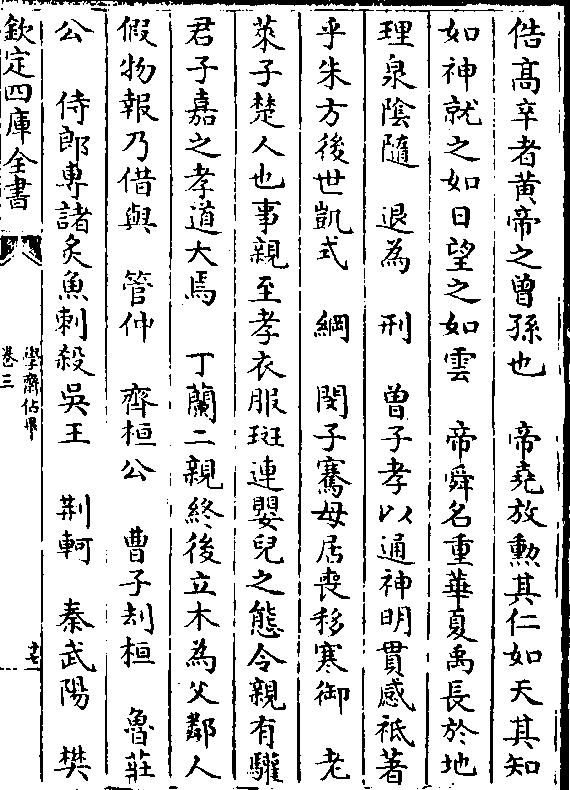 俈高辛者黄帝之曾孫也　帝堯放勲其仁如天其知
如神就之如日望之如雲　帝舜名重華夏禹長於地
理泉隂隨　退為　刑　曾子孝以通神明貫感祗著
乎朱方後世凱式　綱　閔子騫母居喪移寒御　老
萊子楚人也事親至孝衣服斑連嬰兒之態令親有驩
君子嘉之孝道大焉　丁蘭二親終後立木為父鄰人
假物報乃借與　管仲　齊桓公　曹子刦桓　魯莊
公　侍郎専諸炙魚刺殺吳王　荆軻　秦武陽　樊
欽定四庫全書
學齋佔畢
卷三